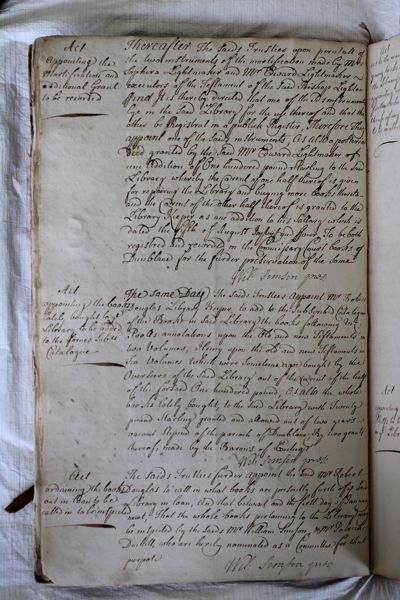 Act
Appointing the
Mortification and
additional Grant
to be recorded
Thereafter The Saids Trustees upon perusall of
the two instruments of the mortification made by Mrs
Sophira Lightmaker and Mr Edward Lightmaker
executors of the Testament of the said Bishop Lighton
find it is thereby directed that one of the
lye in the Said Library for the use thereof and that the
other be Registrat in a publick Register, Therefore They
appoint one of the Said instruments, As also a posterior
Deed granted by the Said Mr Edward Lightmaker of
ane Addition of One hundred pound Starling to the Said
Library whereby the Current of one half thereof is given
for repairing the Library and buying more books thereto
and the Current off the other half thereof is granted to the
Library Keeper as ane addition to his Sallary which is
dated the fifth of August and four, To be both
registred and recorded in the Commissary Court books of
Dumblane for the further preservation of the Same
Will: Simson preses
Act
appointing the books
lately bought to the
Library to be added
to the former Subscribed
Catalogue
The Same Day The Saids Trustees Appoint Mr Robert
Douglas Library Keeper, to add to the Subscribed Catalogue
of the Books in Said Library the books following viz
Pool's annotations upon the Old and new Testaments in
two Volumes, Henry upon the old and new Testaments in
Six Volumes which were Sometime agoe bought by the
Overseers of the Said Library out of the Current of the half
of the forsaid One hundred pound, As also the whole
books lately bought, to the Said Library with Twenty
pound Starling granted and allowed out of two years
vacant Stipend of the paroch of Dumblane, By two grants
thereof made by the Barrons of Excheqr
Will Simson preses
Act
ordaining the books
out in loan to be
called in to be inspected
The Saids Trustees further appoint the Said Mr Robert
Douglas to call in what books are presently forth of the Said
Library in loan, And that betwixt and the first day of January
next, That the whole books pertaining to the Library may
be inspected by the Saids Mr William Simson, & Mr Patrick
Duthill, who are hereby nominated as a Committee for that
purpose
Will: Simson preses